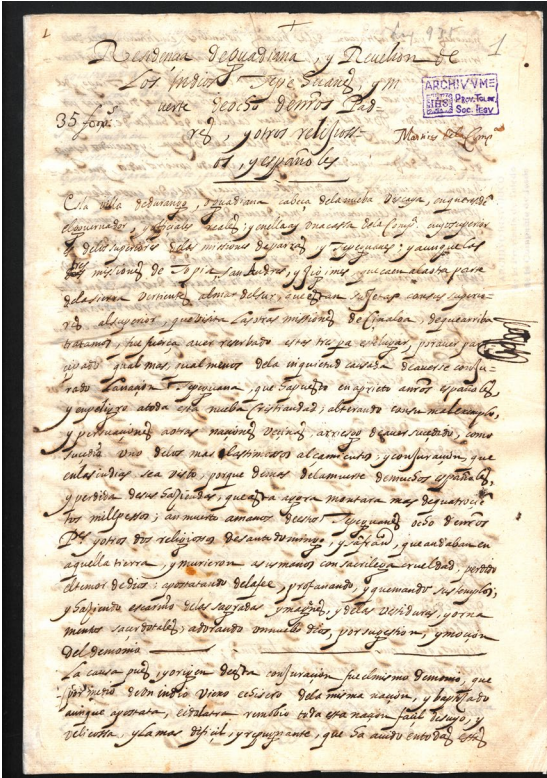 1
Residencia de guadiana, y Revelion de
Los Indios Tepeguanes, y m
uerte de ocho de nros Pad-
res, y otros religioso-
os, y españoles
ARCHIVVM
PROV. TOLET.
SOC. IESV
IHS
Martires de la Comp
Esta villa de durango, o guadiana cabeça de la nueba vizcaya, en que reside
el governador, y oficiales reales; y en ella ay una casa de la Comp.ª cuyo superior
lo es de los superiores de las missiones de parras, y Tepeguanes: y aunque las
missiones de Topia, san Andres, y Xiximes que caen a la otra parte
de la sierra vertientes al mar del sur, que estan sujetas con sus superio-
res al superior, que visita las otras missiones de Cinaloa, de que arriba
tratamos, fue fuerça aver reservado estas tres pa este lugar, por aver par-
ticipado qual mas, qual menos de la inquietud causada de averse conju-
rado la naçion Tepeguana, que a puesto en aprieto a nros españoles,
y en peligro a toda esta nueba cristiandad; alterando con su mal exemplo,
y persuaciones a otras naciones vecinas, a riesgo de aver sucedido, como
sucedio uno de los mas lastimosos alçamientos, y conjuraçion, que
en las indias se a visto, porque demas de la muerte de muchos españoles,
y perdida de sus haziendas, que asta agora montara mas de quatrocien
tos mill pessos; an muerto a manos de estos Tepeguanes ocho de nros
P.es y otros dos religiosos de santo domingo, y s. fran.co, que andaban en
aquella tierra, y murieron a sus manos con sacrilega crueldad; perdido
el temor de dios: apostatando de la fee, profanando, y quemando sus templos,
y haziendo escarnio de las sagradas ymagines, y de las vestiduras, y orna
mentos sacerdotales; adorando un nuebo dios, por sugestion, y mocion
del demonio.
La causa pues, y origen de esta conjuracion fue el mismo demonio, que
por medio de un indio viejo echisero de la misma nacion, y baptiçado
aunque apostata, e idolatra rembolbio toda esta naçion façil de suyo, y
velicosa, y la mas dificil, y repugnante, que ha avido en todas estas